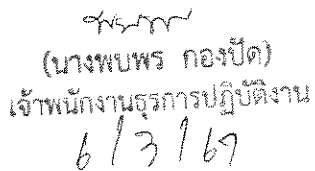 (นางพบพร กองปัด)
เจ้าพนักงานธุรการปฏิบัติงาน
6/3/67